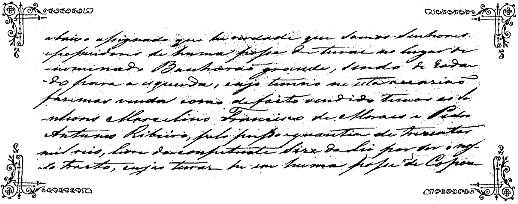 abaixo assignado que he verdade que somos senhores
e possuidores de huma posse de terras no lugar de
nominado Banharão grande, sendo de
para a esquerda, cujo terreno
fazemos venda como de facto vendido temos ao Se
nhores Marcelino Francisco de Moraes e Pedro
Antonio Ribeiro, pela quantia de trezentos
mil reis, livre da competente Siza da Lei por
do trato, cujas terras he em huma posse de Capoei